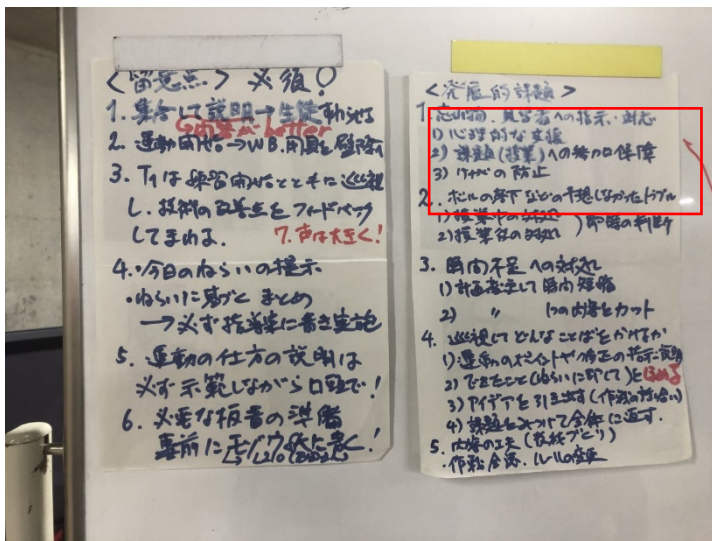 <留意点> 必須!
1. 集合して説明→生徒すわらせる
better
2. 運動開始→W.B.用具を
3. T1は練習開始とともに巡視
し、技術の改善点をフィードバック
してまわる。
7. 声は大きく!
4. 今日のねらいの提示
・ねらいに基づくまとめ
→必ず指導案に書き実施
5. 運動の仕方の説明は
必ず示範しながら口頭で!
6. 必要な板書の準備
事前に
<発展的課題>
1. 忘れ物、見学者への指示・対応
1) 心理的な支援
2) 課題(授業)への 保障
3) けがの防止
2. ボールの落下などの予想しなかったトラブル
1) 授業中の対処
2) 授業後の対処 ) 即時の判断
3. 時間不足への対処
1) 計画 して時間短縮
2) 〃 1つの内容をカット
4. 巡視してどんなことばをかけるか
1) 運動のポイントや修正の指示・説明
2) できたこと(ねらいに即して)をほめる
3) アイデアを引き出す(作戦の話合い)
4) 課題をみつけて全体に返す。
5. 内容の工夫(教材づくり)
・作戦会議、ルールの変更